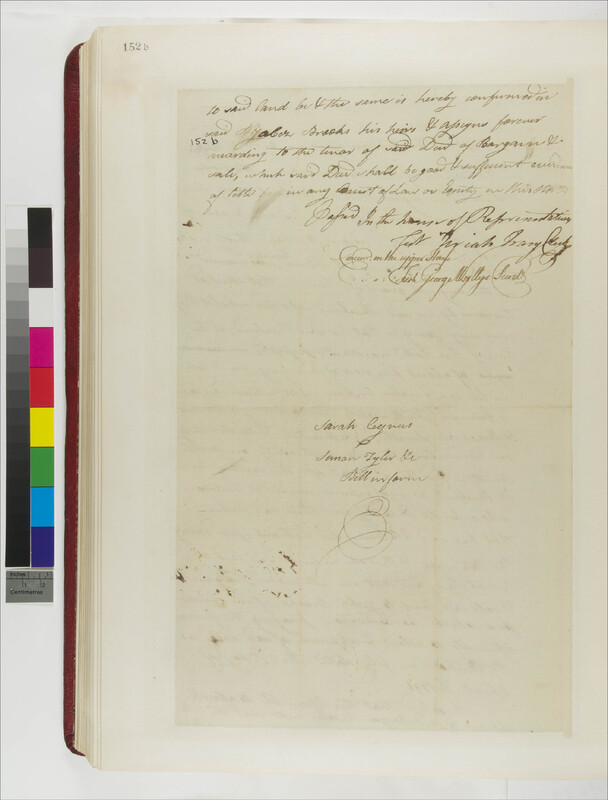 152 b
to said land be & the same is hereby confirmed in
said Jabez Brooks his heirs & assigns forever
152 b
according to the tenor of said Deed of Bargain &
sale, which said Deed shall be good & sufficient evidence
of title in any Court of Law or Equity in this State
Passed In the house of Representatives
Test Uriah Tracy Clerk
Concurrd in the upper House
Test George Wyllys Secret
Sarah Cognus
Tyler &c
Bill in form
Inches
1 2
Centimetres